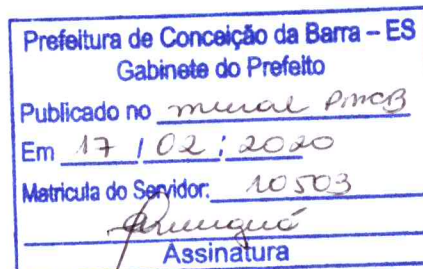 Prefeitura de Conceição da Barra – ES
Gabinete do Prefeito
Publicado no mural PMCB
Em 17 / 02 / 2020
Matricula do Servidor: 10503
Assinatura